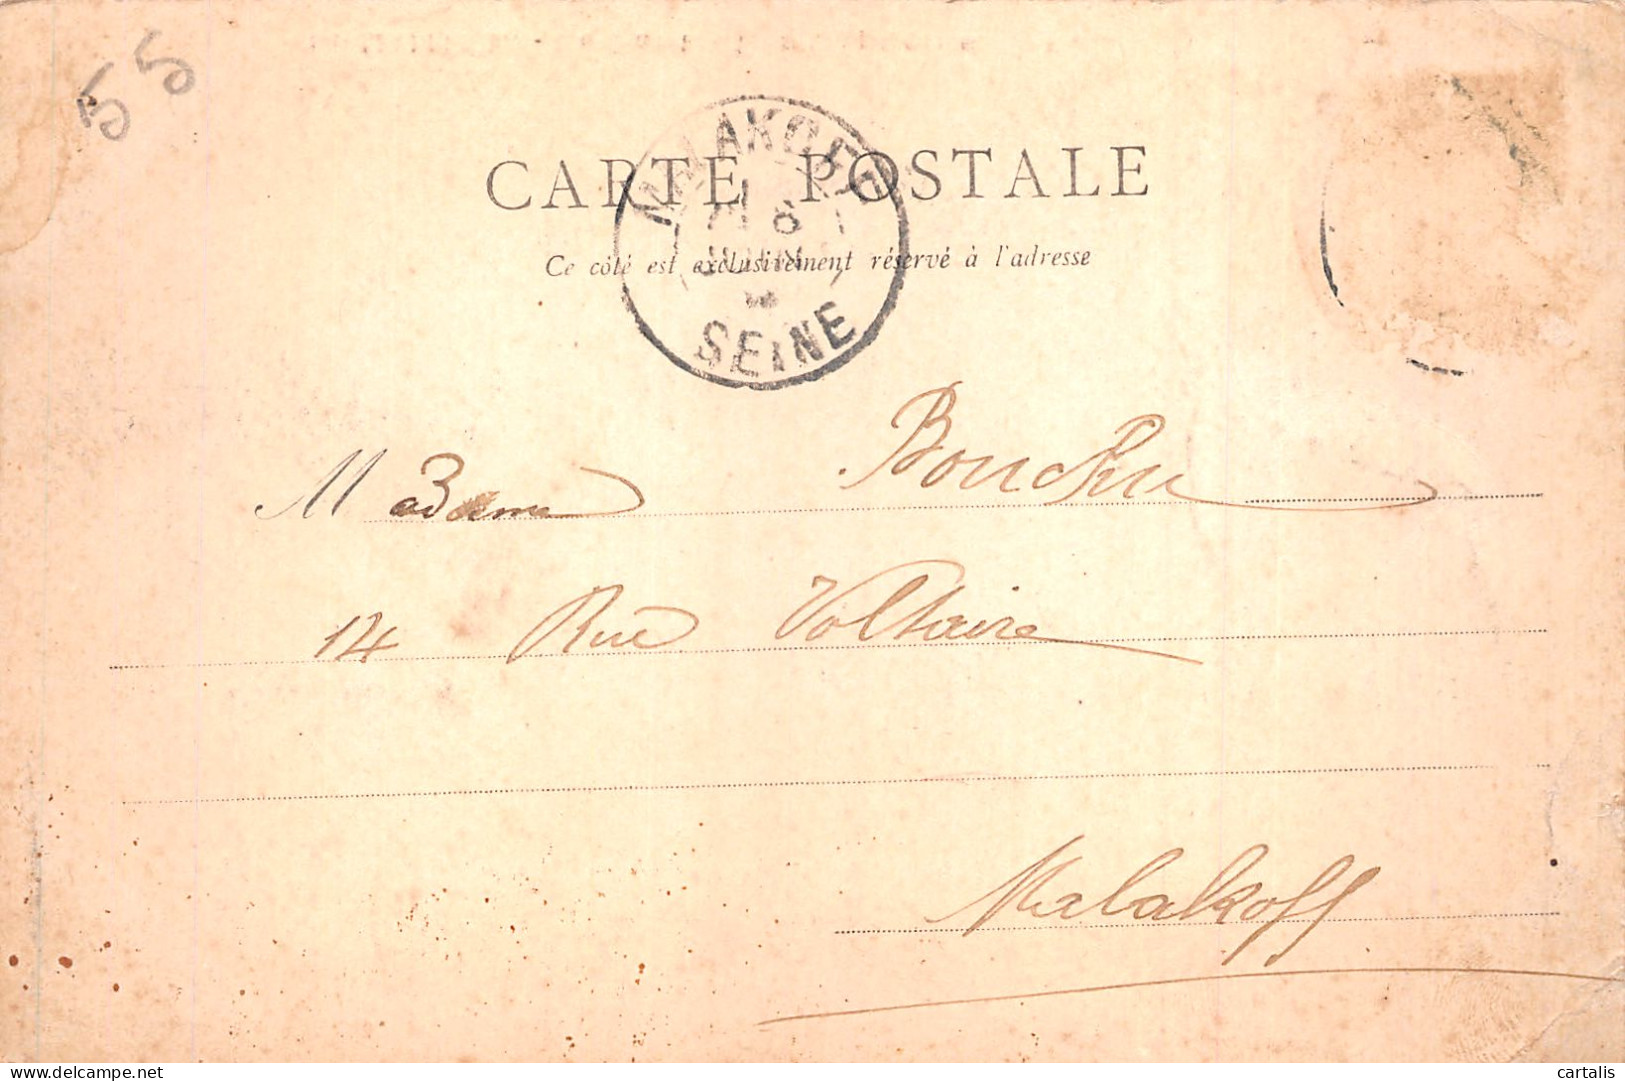 55
CARTE POSTALE
Ce côté est exclusivement réservé à l'adresse
MALAKOFF
6
SEINE
Madame Bouchu
14 Rue Voltaire
Malakoff
delcampe.net
cartalis